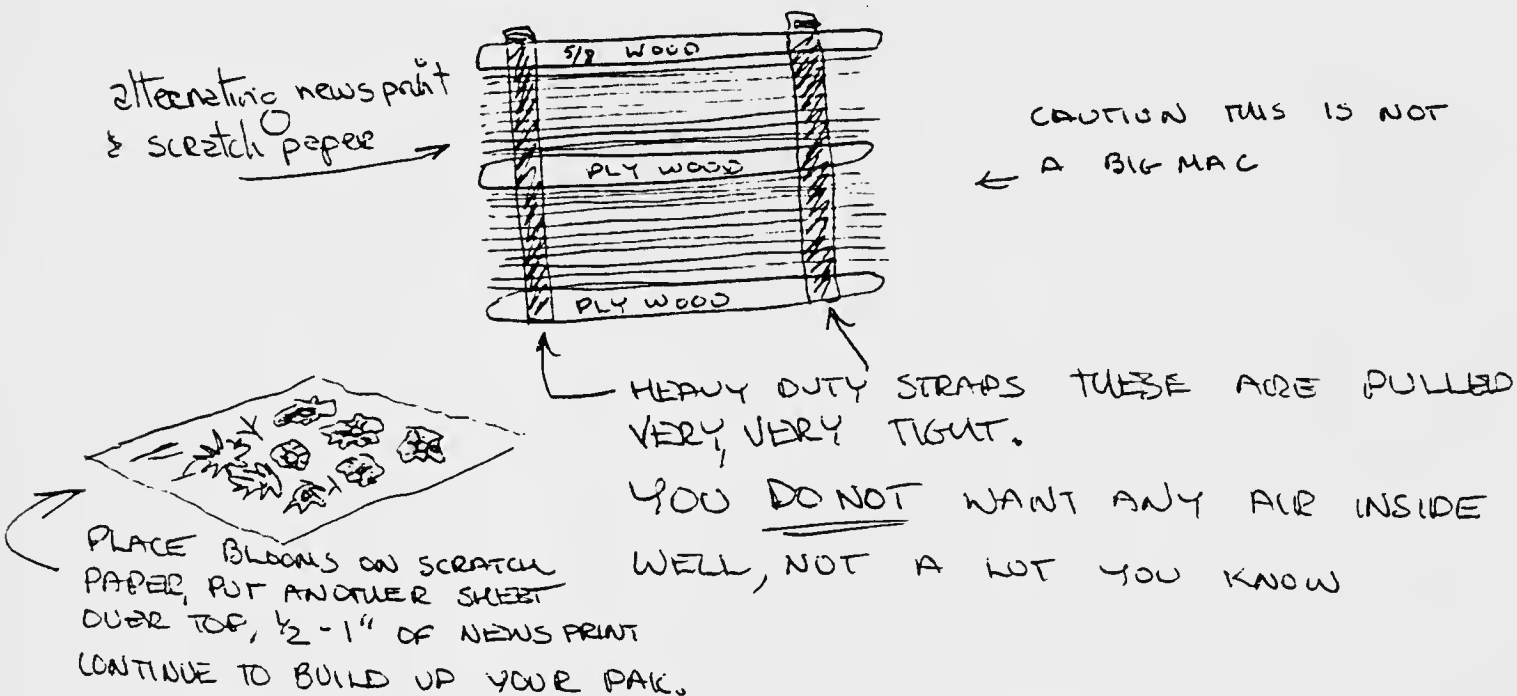 5/8 WOOD
alternating newsprint
& scratch paper
PLY WOOD
PLY WOOD
CAUTION THIS IS NOT
A BIG MAC
HEAVY DUTY STRAPS THESE ARE PULLED
VERY, VERY TIGHT.
YOU DO NOT WANT ANY AIR INSIDE
WELL, NOT A LOT YOU KNOW
PLACE BLOOMS ON SCRATCH
PAPER, PUT ANOTHER SHEET
OVER TOP, 1/2 - 1" OF NEWS PRINT
CONTINUE TO BUILD UP YOUR PAK.